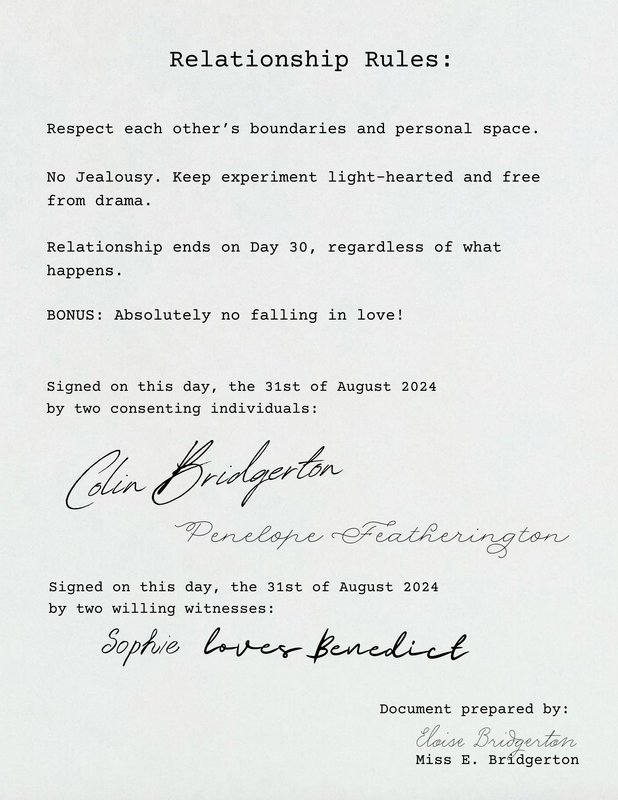 Relationship Rules:
Respect each other’s boundaries and personal space.
No Jealousy. Keep experiment light-hearted and free
from drama.
Relationship ends on Day 30, regardless of what
happens.
BONUS: Absolutely no falling in love!
Signed on this day, the 31st of August 2024
by two consenting individuals:
Colin Bridgerton
Penelope Featherington
Signed on this day, the 31st of August 2024
by two willing witnesses:
Sophie loves Benedict
Document prepared by:
Eloise Bridgerton
Miss E. Bridgerton